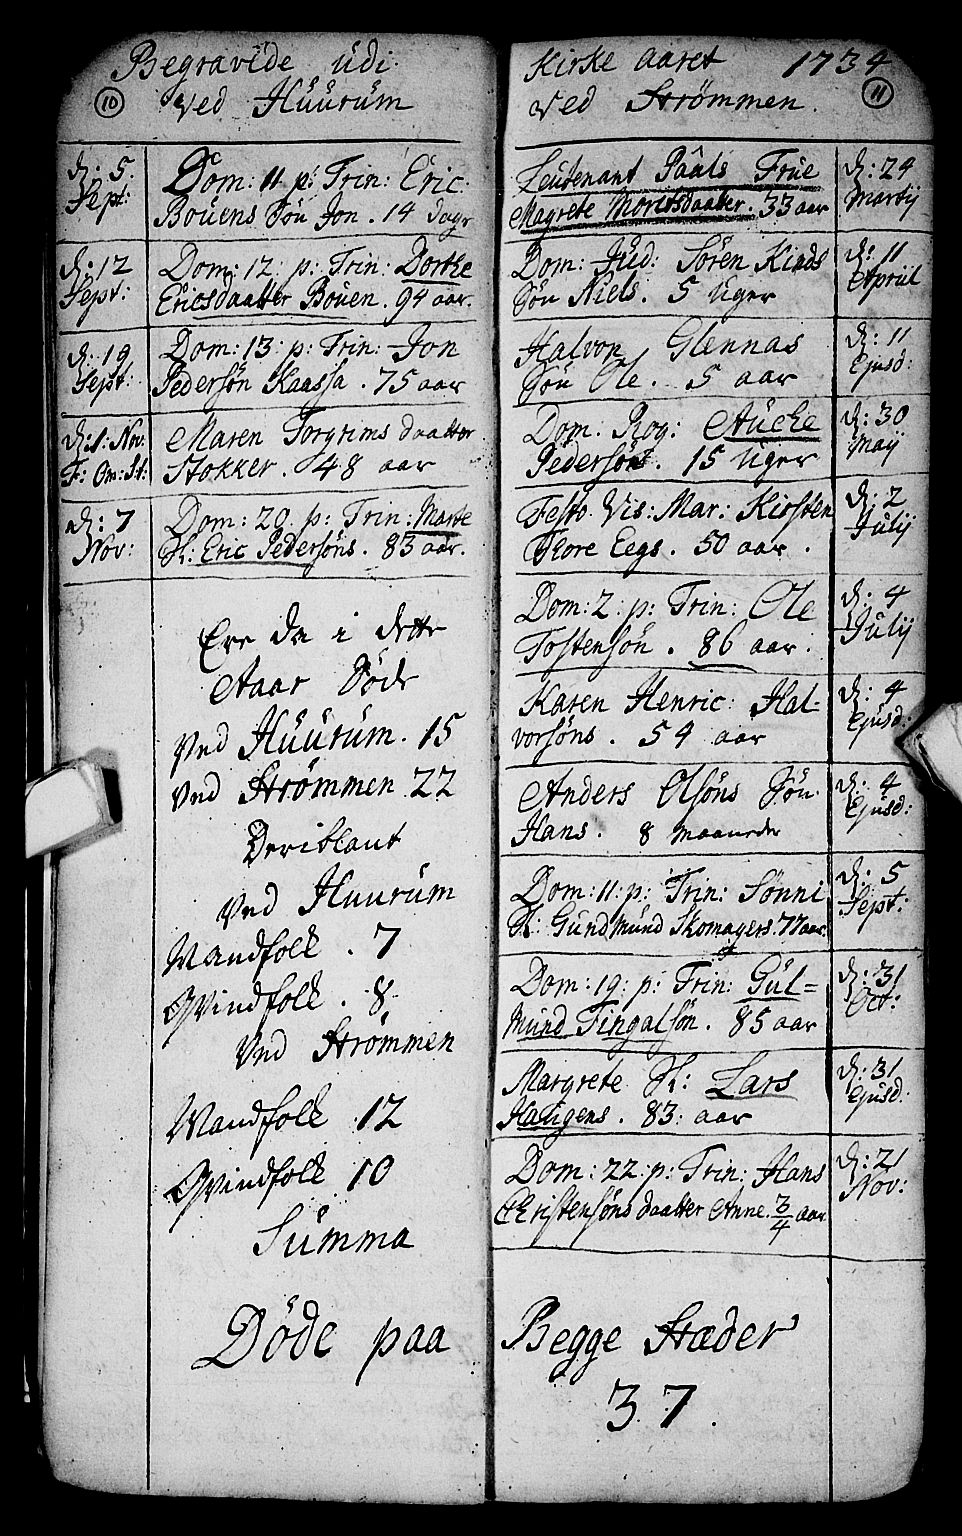 Begravede udi
10 ved Huurum
d: 5. Sept: Dom: 11 p: Trin: Eric
Bouens Søn Jon. 14 dage
d: 12 Sept: Dom: 12 p: Trin: Dorthe
Ericsdaatter Bouen. 94 aar.
d. 19 Sept: Dom: 13: p: Trin: Jon
Pedersøn Kaassa. 75 aar
d: 1. Nov: Maren Torgrims daatter
F: Om: St: Stokker. 48 aar
d: 7 Nov: Dom: 20. p: Trin: Marte
Sl: Eric Pedersøns. 83 aar.
Ere da i dette
Aaar Døde
Ved Huurum. 15
Ved Strømmen 22
Deriblant
Ved Huurum
Mandfolk. 7
Qvindfolk. 8
Ved Strømmen
Mandfolk. 12
Qvindfolk 10
Summa
Døde paa
Kirke aaret 1734
Ved Strømmen. 11
Leutenant Paals Frue d: 24
Magrete Moritsdaatter. 33 aar Martij
Dom: Jud: Søren Kinds d: 11
Søn Niels. 5 Uger Apriil
Halvor Glennas d: 11
Søn Ole. 5 aar Ejusd:
Dom. Rog: Aucke d: 30
Pedersøns. 15 Uger Maij
Festo Vis: Mar: Kirsten d: 2
Thore Eegs. 50 aar. Julij
Dom: 2: p: Trin: Ole d: 4
Tostensøn. 86 aar. Julij
Karen Henric: Hal- d: 4
vorsøns. 54 aar Ejusd:
Anders Olsøns Søn d: 4
Hans. 8 maaneder Ejusd:
Dom: 11: p: Trin: Sønni d: 5
Sl: Gundmund Skomagers. 77 aar. Sept:
Dom: 19: p: Trin: Gul= d: 31
mund Tingalsøn. 85 aar Oct:
Margrete Sl: Lars d: 31
Haugens. 83: aar Ejusd:
Dom: 22. p: Trin: Hans d: 21
Christensøns daatter Anne. 3/4 aar Nov:
Begge Stæder
37.